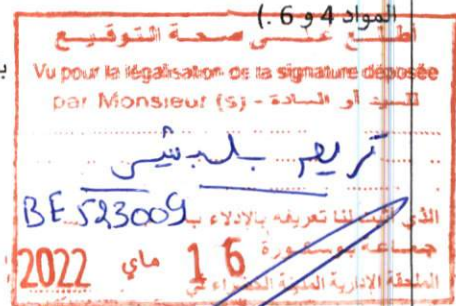 المواد 4 و 6 .)
أطلع على صحة التوقيع
Vu pour la légalisation de la signature déposée
par Monsieur (s) - للسيد أو السادة
كريم بلبشير
الذي أثبت لنا تعريفه بالإدلاء ب BE 523009
جماعة بوسكورة
16 ماي 2022
الملحقة الإدارية المدينة الخضراء في